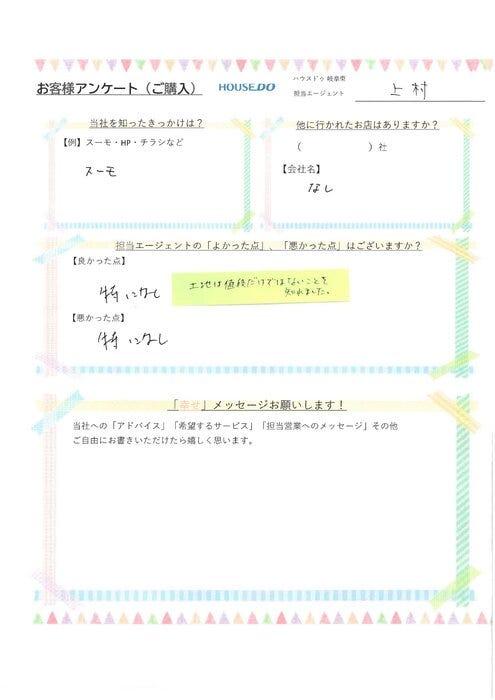 ハウスドゥ 岐阜東
お客様アンケート（ご購入） HOUSEDO 担当エージェント 上村
当社を知ったきっかけは？
【例】スーモ・HP・チラシなど
スーモ
他に行かれたお店はありますか？
（ ）社
【会社名】
なし
担当エージェントの「よかった点」、「悪かった点」はございますか？
【良かった点】
特になし
土地は値段だけではないことを
知れました。
【悪かった点】
特になし
「幸せ」メッセージお願いします！
当社への「アドバイス」「希望するサービス」「担当営業へのメッセージ」その他
ご自由にお書きいただけたら嬉しく思います。